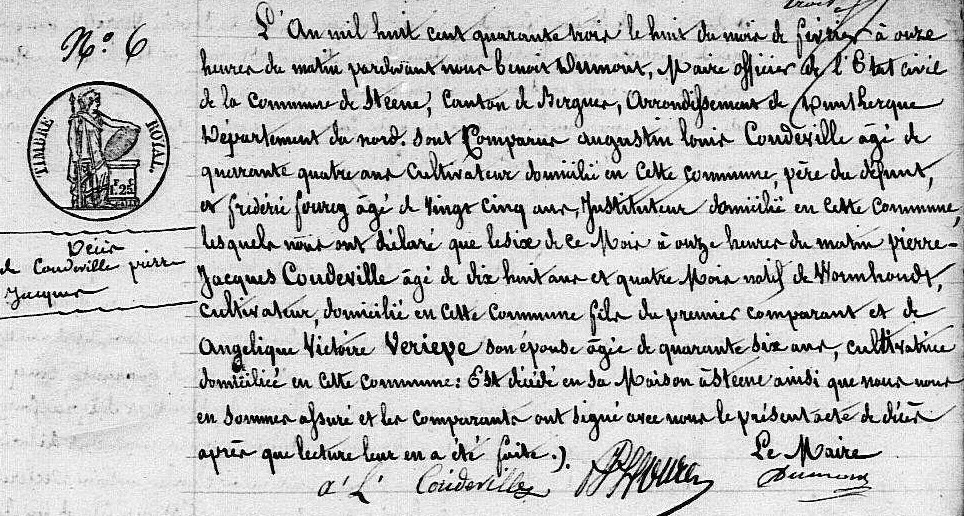 N.o 6
TIMBRE ROYAL
1F.25C
Décès
de Coudeville pierre
Jacques
L'An mil huit cent quarante trois le huit du mois de février à onze
heures du matin pardevant nous benoit Dumont, Maire officier de l'Etat civil
de la Commune de Steene, Canton de Bergues, Arrondissement de Dunkerque
Département du nord. sont Comparus augustin louis Coudeville âgé de
quarante quatre ans Cultivateur domicilié en Cette commune, père du défunt,
et frédéric fourcy âgé de Vingt Cinq ans, Instituteur domicilié en cette Commune,
lesquels nous ont déclaré que le six de ce Mois à onze heures du matin pierre-
Jacques Coudeville âgé de dix huit ans et quatre Mois natif de Wormhoudt,
cultivateur, domicilié en Cette Commune fils du premier comparant et de
Angelique Victoire Veriepe son épouse âgée de quarante six ans, cultivatrice
domiciliée en cette commune: Est décédé en sa Maison à Steene ainsi que nous nous
en sommes assuré et les comparants ont signé avec nous le présent acte de décès
après que lecture leur en a été faite.).
Le Maire
a L Coudeville
Dumont